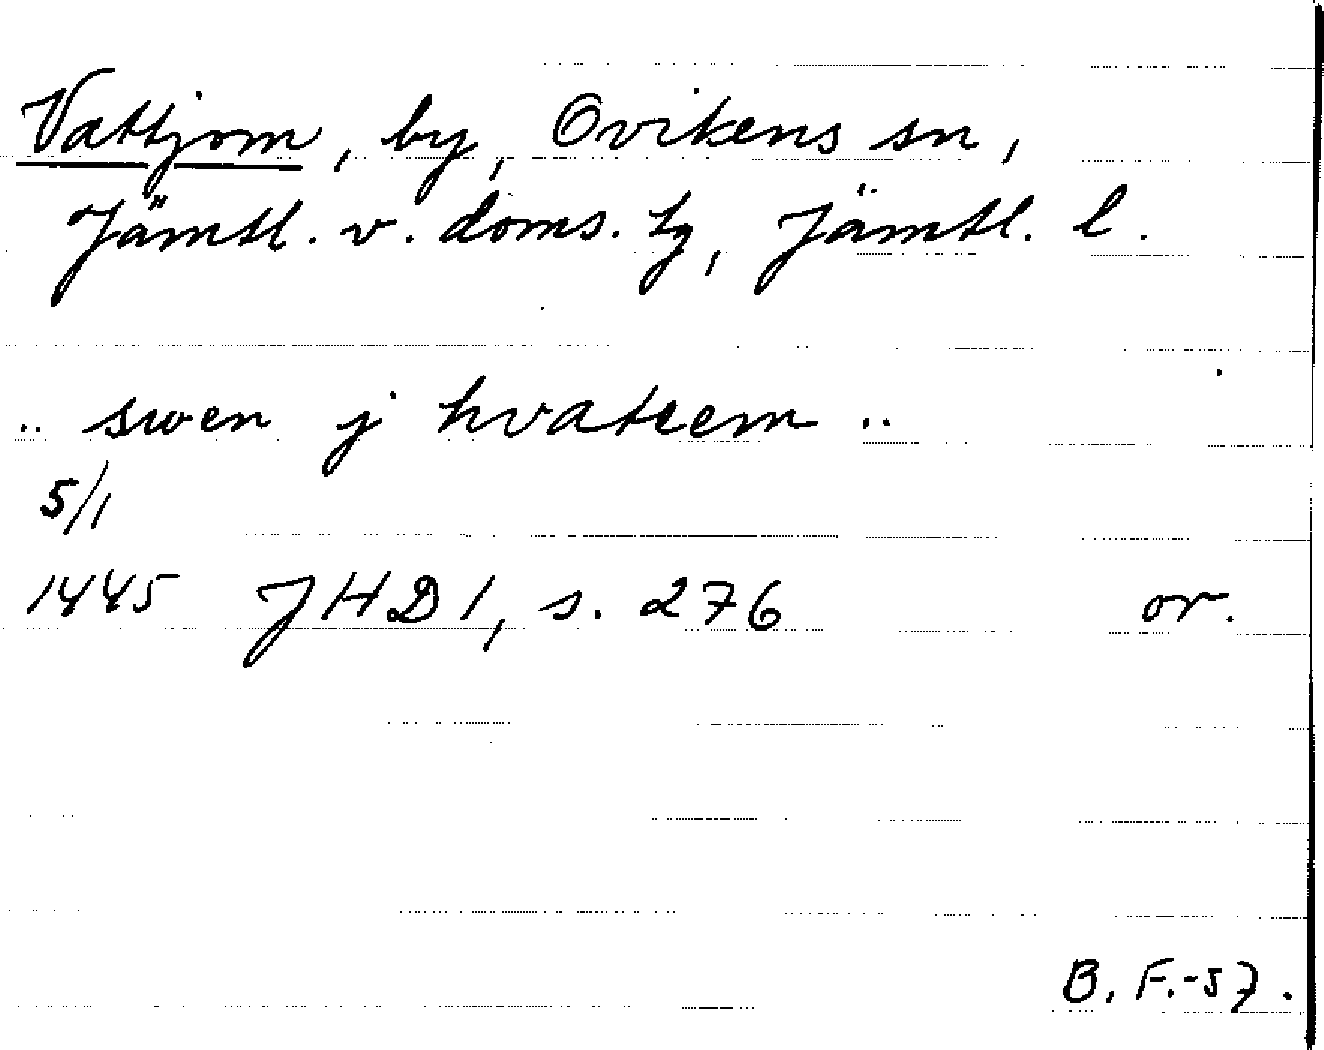 Vattjom, by, Ovikens sn,
Jämtl. v. doms. tg, Jämtl. l.
.. swen j hvateem ..
5/1
1445 JHD1, s. 276 or.
B. F.-57.